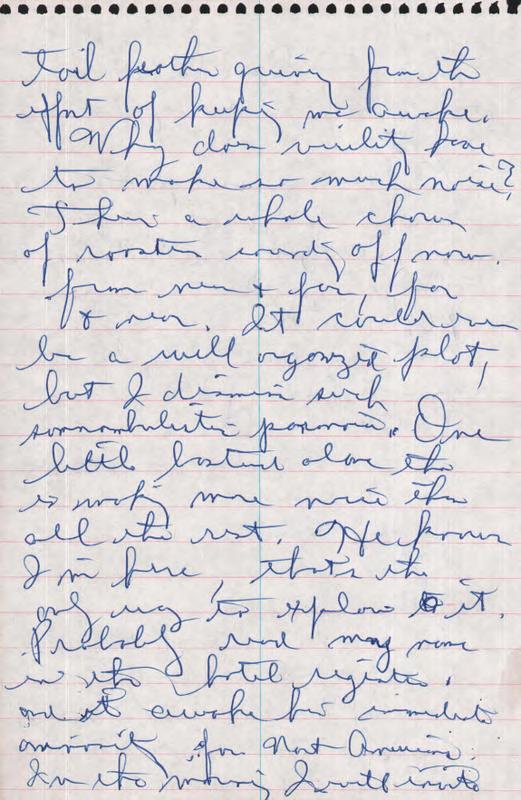 tail feathers quivering from the
effort of keeping me awake.
Why does virility have
to make so much noise?
There's a whole chorus
of roosters sounding off now.
from near & far, far
& near. It could even
be a well organized plot,
but I dismiss such
somnambulistic paranoia. One
little bastard alone tho
is making more noise than
all the rest. He knows
I'm here, that's the
only way to explain it.
Probably read my name
in the hotel register.
and it awoke his immediate
animosity for North Americans.
In the morning I will